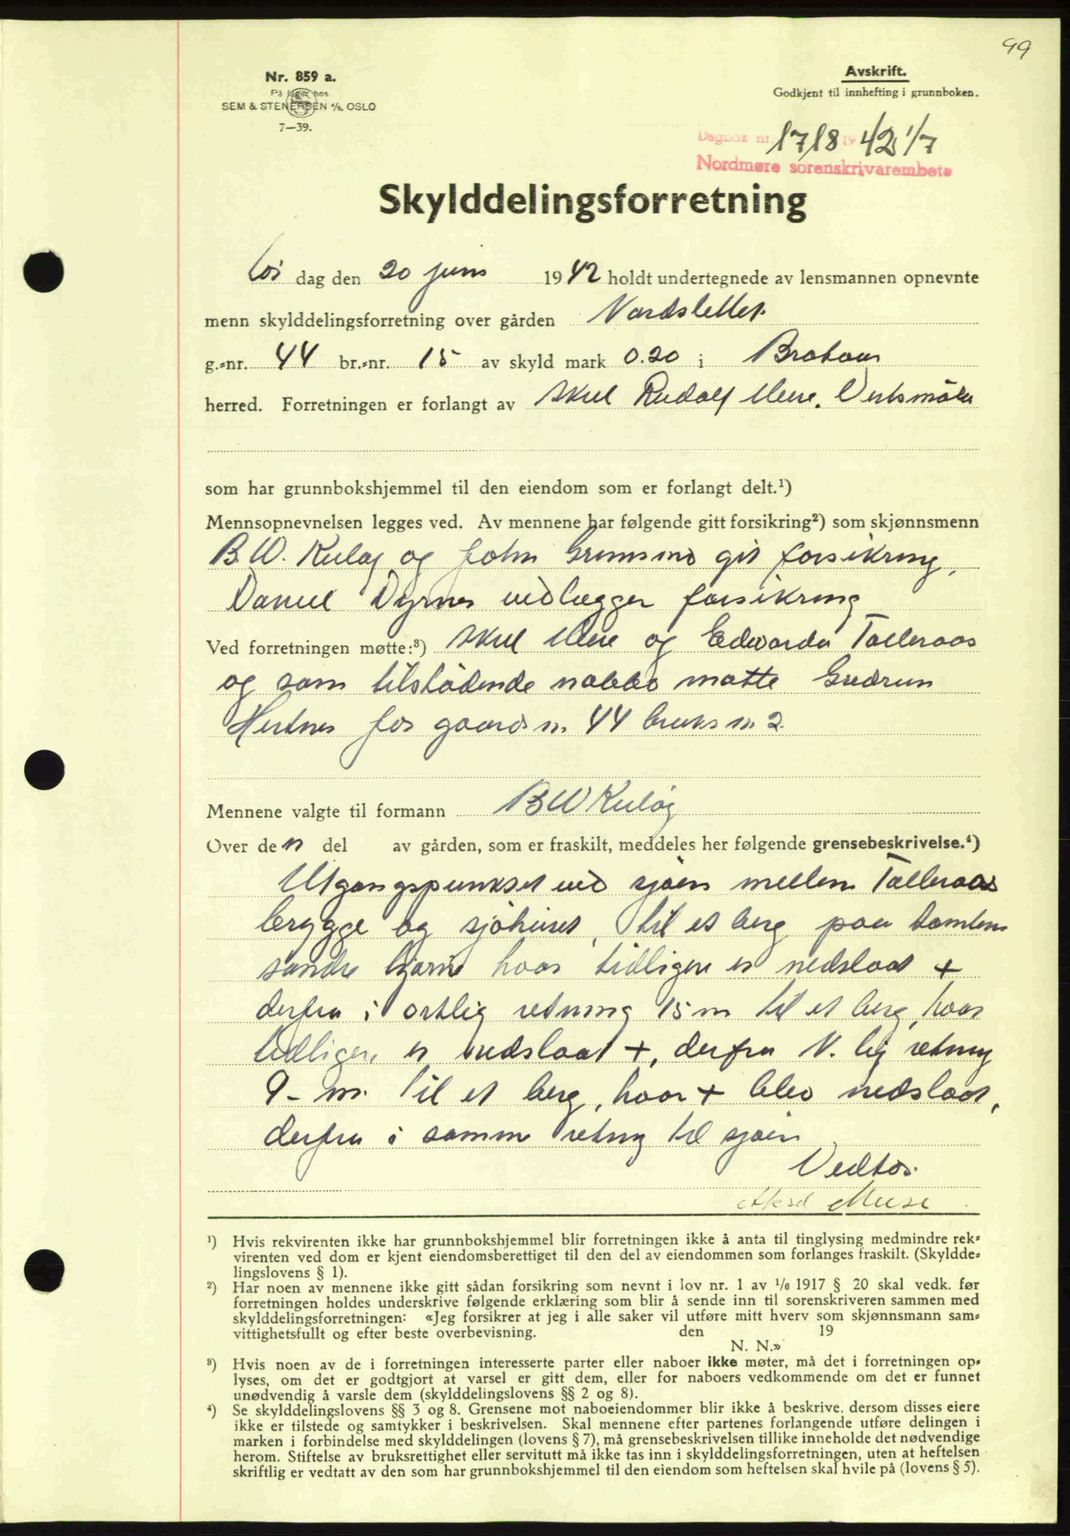 99
Nr. 859 a.
På lager hos
SEM & STENERSEN A/S, OSLO
7—39.
Avskrift.
Godkjent til innhefting i grunnboken.
Dagbok nr. 1718 1942 1/7
Nordmøre sorenskrivarembete
Skylddelingsforretning
Lør dag den 20 juni 1942 holdt undertegnede av lensmannen opnevnte
menn skylddelingsforretning over gården Nordslettet
g.-nr. 44 br.-nr. 15 av skyld mark 0.20 i
herred. Forretningen er forlangt av Rudolf
som har grunnbokshjemmel til den eiendom som er forlangt delt.¹)
Mennsopnevnelsen legges ved. Av mennene har følgende gitt forsikring²) som skjønnsmenn
B.W. Kuløy og John Grimsmo git forsikring,
Daniel Dyrnes vedlægger forsikring
Ved forretningen møtte:³) og Edvarda Talleraas
og som tilstødende nabbo møtte Gudrun
for gaards n. 44 bruks n. 2
Mennene valgte til formann BW Kuløy
Over den del av gården, som er fraskilt, meddeles her følgende grensebeskrivelse.⁴)
Utgangspunkset ved sjøen mellem Talleraas
brygge og sjøhuset, til et berg paa tomtens
søndre hjørne hvor tidligere er nedslaat +
derfra i østlig retning 15 m til et berg, hvor
tidligere er nedslaat +, derfra N. lig retning
9- m. til et berg, hvor + blev nedslaat,
derfra i samme retning til sjøen
¹) Hvis rekvirenten ikke har grunnbokshjemmel blir forretningen ikke å anta til tinglysing medmindre rek-
virenten ved dom er kjent eiendomsberettiget til den del av eiendommen som forlanges fraskilt. (Skyldde-
lingslovens § 1).
²) Har noen av mennene ikke gitt sådan forsikring som nevnt i lov nr. 1 av 1/6 1917 § 20 skal vedk. før
forretningen holdes underskrive følgende erklæring som blir å sende inn til sorenskriveren sammen med
skylddelingsforretningen: «Jeg forsikrer at jeg i alle saker vil utføre mitt hverv som skjønnsmann sam-
vittighetsfullt og efter beste overbevisning. den 19
N. N.»
³) Hvis noen av de i forretningen interesserte parter eller naboer ikke møter, må det i forretningen op-
lyses, om det er godtgjort at varsel er gitt dem, eller for naboers vedkommende om det er funnet
unødvendig å varsle dem (skylddelingslovens §§ 2 og 8).
⁴) Se skylddelingslovens §§ 3 og 8. Grensene mot naboeiendommer blir ikke å beskrive, dersom disses eiere
ikke er tilstede og samtykker i beskrivelsen. Skal mennene efter partenes forlangende utføre delingen i
marken i forbindelse med skylddelingen (lovens § 7), må grensebeskrivelsen tillike inneholde det nødvendige
herom. Stiftelse av bruksrettighet eller servitutt må ikke tas inn i skylddelingsforretningen, uten at heftelsen
skriftlig er vedtatt av den som har grunnbokshjemmel til den eiendom som heftelsen skal hvile på (lovens § 5).